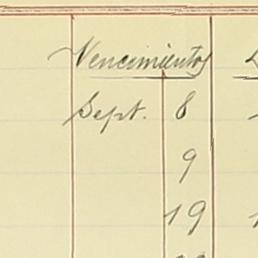 Vencimientos
Sept. 8
9
19